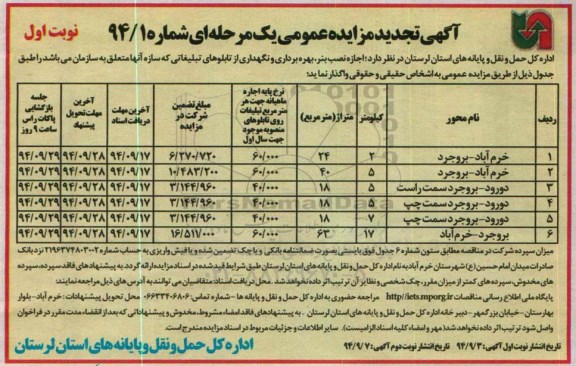 آگهی تجدید مزایده عمومی یک مرحله‌ای شماره ۹۴/۱
نوبت اول
اداره کل حمل و نقل و پایانه های استان لرستان در نظر دارد؛ اجازه نصب بنر، بهره برداری و نگهداری از تابلوهای تبلیغاتی که سازه آنها متعلق به سازمان می باشد را طبق
جدول ذیل از طریق مزایده عمومی به اشخاص حقیقی و حقوقی واگذار نماید:
ردیف | نام محور | کیلومتر | متراژ (متر مربع) | نرخ پایه اجاره ماهیانه جهت هر متر مربع تبلیغات روی تابلوهای منصوبه موجود جهت سال اول | مبلغ تضمین شرکت در مزایده | آخرین مهلت دریافت اسناد | آخرین مهلت تحویل پیشنهاد | جلسه بازگشایی پاکات راس ساعت ۹ روز
۱ | خرم آباد-بروجرد | ۲ | ۲۴ | ۶۰/۰۰۰ | ۶/۲۷۰/۷۲۰ | ۹۴/۰۹/۱۷ | ۹۴/۰۹/۲۸ | ۹۴/۰۹/۲۹
۲ | خرم آباد-بروجرد | ۵ | ۴۰ | ۶۰/۰۰۰ | ۱۰/۴۸۳/۲۰۰ | ۹۴/۰۹/۱۷ | ۹۴/۰۹/۲۸ | ۹۴/۰۹/۲۹
۳ | دورود-بروجرد سمت راست | ۵ | ۱۸ | ۴۰/۰۰۰ | ۳/۱۴۴/۹۶۰ | ۹۴/۰۹/۱۷ | ۹۴/۰۹/۲۸ | ۹۴/۰۹/۲۹
۴ | دورود-بروجرد سمت چپ | ۵ | ۱۸ | ۴۰/۰۰۰ | ۳/۱۴۴/۹۶۰ | ۹۴/۰۹/۱۷ | ۹۴/۰۹/۲۸ | ۹۴/۰۹/۲۹
۵ | دورود-بروجرد سمت چپ | ۷ | ۱۸ | ۴۰/۰۰۰ | ۳/۱۴۴/۹۶۰ | ۹۴/۰۹/۱۷ | ۹۴/۰۹/۲۸ | ۹۴/۰۹/۲۹
۶ | بروجرد-خرم آباد | ۱۷ | ۶۳ | ۶۰/۰۰۰ | ۱۶/۵۱۷/۰۰۰ | ۹۴/۰۹/۱۷ | ۹۴/۰۹/۲۸ | ۹۴/۰۹/۲۹
میزان سپرده شرکت در مناقصه مطابق ستون شماره ۶ جدول فوق بایستی بصورت ضمانتنامه بانکی و یا چک تضمین شده و یا فیش واریزی به حساب شماره ۲۱۹۶۳۷۴۸۰۳۰۰۲ نزد بانک
صادرات میدان امام حسین (ع) شهرستان خرم آباد به نام اداره کل حمل و نقل و پایانه های استان لرستان طبق شرایط قید شده در اسناد مزایده ارائه گردد. به پیشنهادهای فاقد سپرده، سپرده
های مخدوش، سپرده های کمتر از میزان مقرر، چک شخصی و نظایر آن ترتیب اثر داده نخواهد شد. محل دریافت اسناد: متقاضیان می توانند به آدرس های ذیل مراجعه نمایند:
پایگاه ملی اطلاع رسانی مناقصات http://iets.mporg.ir مراجعه حضوری به اداره کل حمل و نقل و پایانه ها - شماره تماس: ۰۶۶۳۳۴۰۶۸۰۶ محل تحویل پیشنهادات: خرم آباد- بلوار
بهارستان - خیابان بزرگمهر - دبیرخانه اداره کل حمل و نقل و پایانه های استان لرستان. به پیشنهادهای فاقد امضاء، مشروط، مخدوش و پیشنهاداتی که بعد از انقضاء مدت مقرر در فراخوان
واصل شود ترتیب اثر داده نخواهد شد (مهر و امضاء کلیه اسناد الزامیست). سایر اطلاعات و جزئیات مربوط در اسناد مزایده مندرج است.
تاریخ انتشار نوبت اول آگهی: ۹۴/۹/۳ تاریخ انتشار نوبت دوم آگهی: ۹۴/۹/۷
اداره کل حمل و نقل و پایانه های استان لرستان